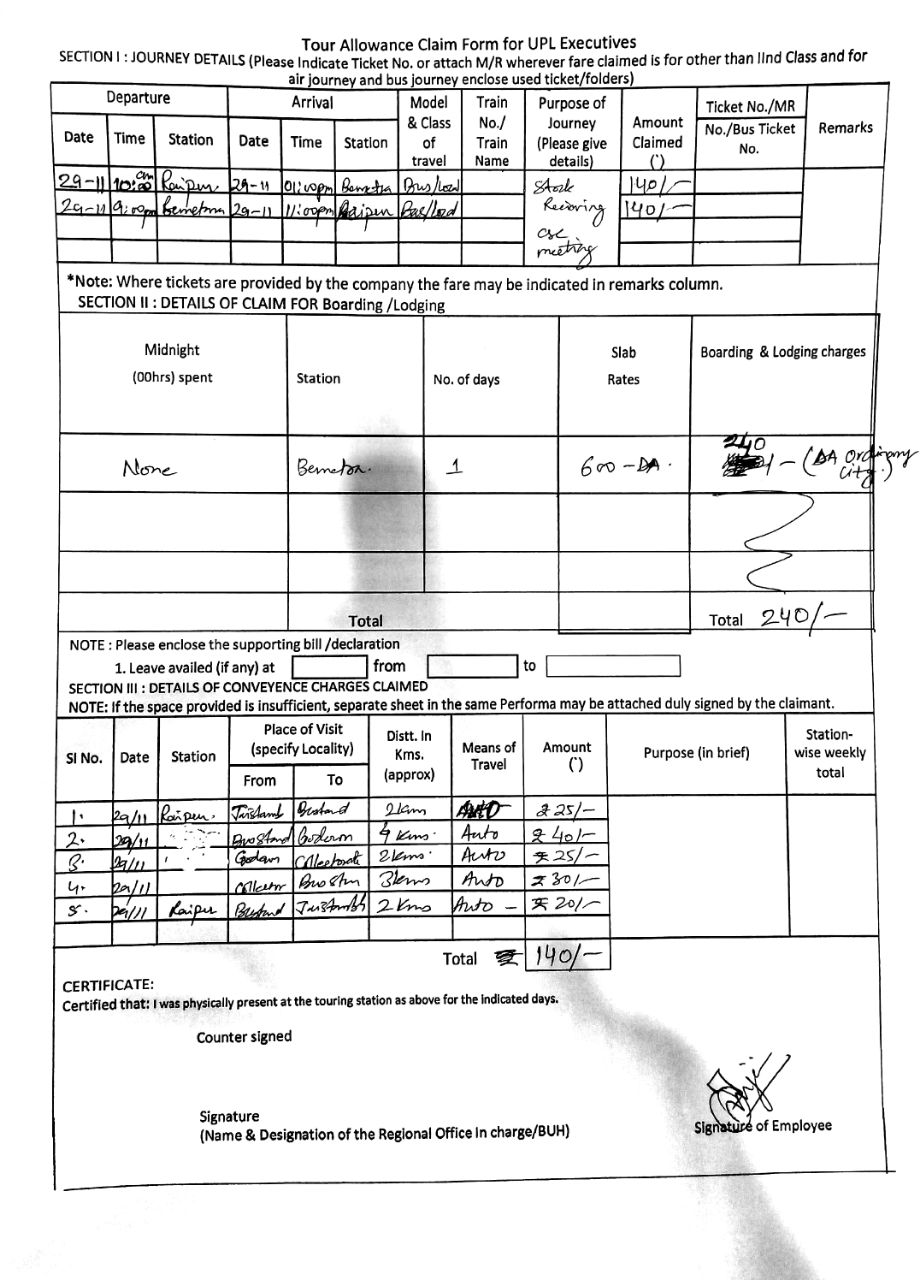 Tour Allowance Claim Form for UPL Executives
SECTION I : JOURNEY DETAILS (Please Indicate Ticket No. or attach M/R wherever fare claimed is for other than IInd Class and for
air journey and bus journey enclose used ticket/folders)
Departure Arrival Model & Class of travel Train No./ Train Name Purpose of Journey (Please give details) Amount Claimed (`) Ticket No./MR No./Bus Ticket No. Remarks
Date Time Station Date Time Station
29-11 10:00 am Raipur 29-11 01:00pm Bemetra Bus/Load Stock 140/-
29-11 9:00pm Bemetara 29-11 11:00pm Raipur Bus/Load Recieving 140/-
CSC
meeting
*Note: Where tickets are provided by the company the fare may be indicated in remarks column.
SECTION II : DETAILS OF CLAIM FOR Boarding /Lodging
Midnight (00hrs) spent Station No. of days Slab Rates Boarding & Lodging charges
None Bemetra. 1 600-DA. 240 /- (DA Ordinary City.)
Total Total 240/-
NOTE : Please enclose the supporting bill /declaration
1. Leave availed (if any) at from to
SECTION III : DETAILS OF CONVEYENCE CHARGES CLAIMED
NOTE: If the space provided is insufficient, separate sheet in the same Performa may be attached duly signed by the claimant.
SI No. Date Station Place of Visit (specify Locality) Distt. In Kms. (approx) Means of Travel Amount (`) Purpose (in brief) Station-wise weekly total
From To
1. 29/11 Raipur. Bustand 2km Auto ₹ 25/-
2. 29/11 BusStand Godown 4 Kms. Auto ₹ 40/-
3. 29/11 Godown Collectorate 2kms. Auto ₹ 25/-
4. 29/11 Collector 3kms Auto ₹ 30/-
5. 29/11 Raipur Bustand 2 Kms Auto - ₹ 20/-
Total ₹ 140/-
CERTIFICATE:
Certified that: I was physically present at the touring station as above for the indicated days.
Counter signed
Signature
(Name & Designation of the Regional Office In charge/BUH)
Signature of Employee